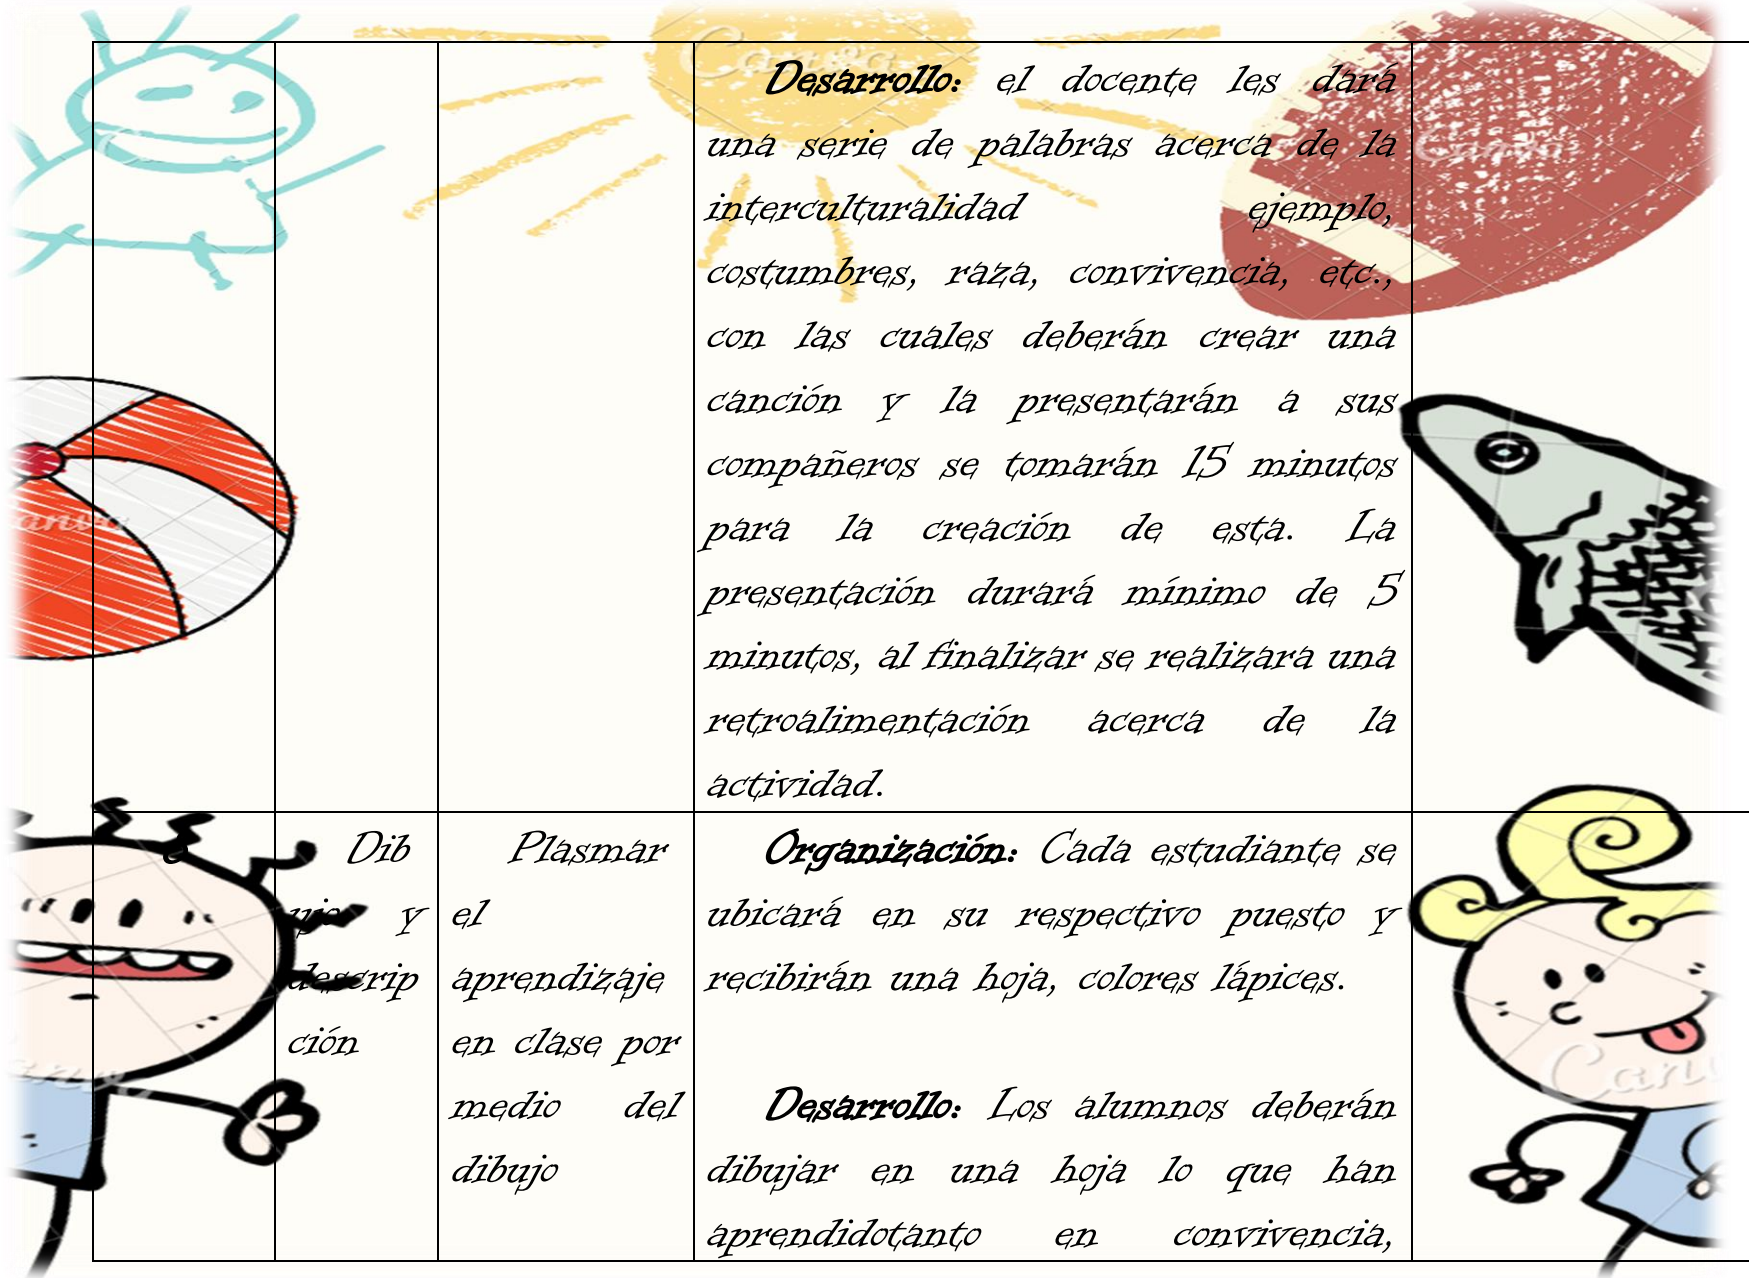 Desarrollo: el docente les dará
una serie de palabras acerca de la
interculturalidad ejemplo,
costumbres, raza, convivencia, etc.,
con las cuales deberán crear una
canción y la presentarán a sus
compañeros se tomarán 15 minutos
para la creación de esta. La
presentación durará mínimo de 5
minutos, al finalizar se realizara una
retroalimentación acerca de la
actividad.
Dib
ujo y
descrip
ción
Plasmar
el
aprendizaje
en clase por
medio del
dibujo
Organización: Cada estudiante se
ubicará en su respectivo puesto y
recibirán una hoja, colores lápices.
Desarrollo: Los alumnos deberán
dibujar en una hoja lo que han
aprendidotanto en convivencia,